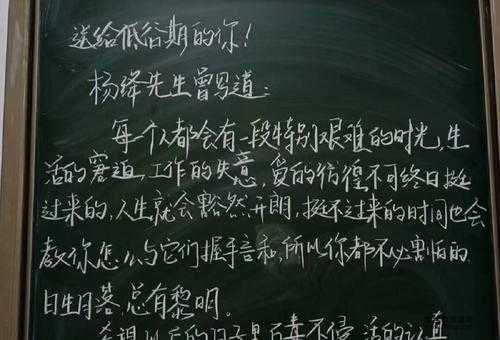 送给低谷期的你!
杨绛先生曾写道:
每一个人都会有一段特别艰难的时光,生
活的窘迫,工作的失意,爱的彷徨不可终日挺
过来的,人生就会豁然开朗,挺不过来的时间也会
教你怎么与它们握手言和,所以你都不必害怕的
日生月落,总有黎明。
希望以后的日子里百毒不侵,活的认真